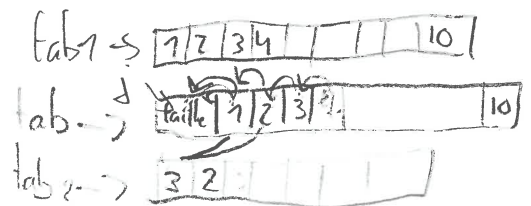 tab1 → 1 2 3 4 10
tab → taille 1 2 3 10
tab2 → 3 2